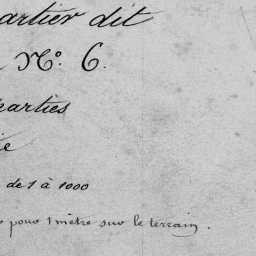 artier dit
N°. 6.
parties
de 1 à 1000
pour 1 mètre sur le terrain.